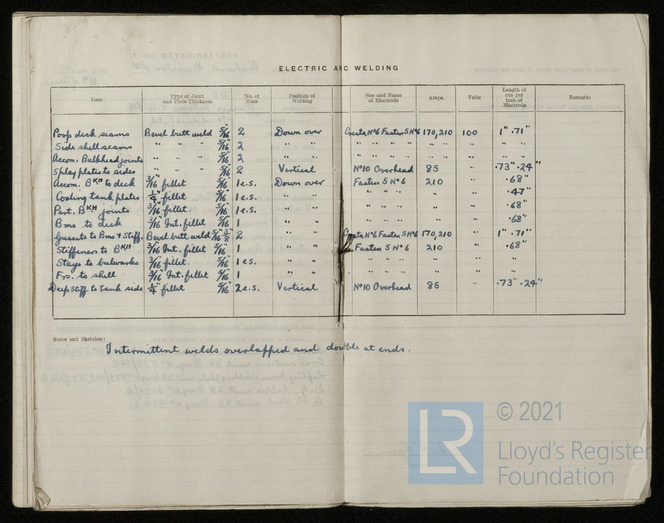 ELECTRIC ARC WELDING
Item Type of Joint and Plate Thickness No. of Runs Position of Welding Size and Name of Electrode Amps. Volts Length of run per inch of Electrode Remarks
Poop deck seams Bevel butt weld 5/16 2 Down over Cresta Nº6 Fastex 5 Nº6 170,210 100 1" .71"
Side shell seams " " 5/16 2 " " " " " " " "
Accom. Bulkhead joints " " 5/16 2 " " " " " " " "
Splay plates to sides " " 5/16 2 Vertical Nº10 Overhead 85 " .73" .24"
Accom. Bᴷᴴ to deck 3/16 fillet 5/16 1 e.s. Down over Fastex 5 Nº6 210 " .68"
Cooling tank plates 1/4 fillet 5/16 1 e.s. " " " " " " .47"
Part. Bᴷᴴ joints 3/16 fillet. 5/16 1 e.s. " " " " " " .68"
Bms to deck 3/16 Int. fillet 5/16 1 " " " " " " .68"
Gussets to Bms & Stiff. Bevel butt weld 5/16 3/8 2 " " Cresta Nº6 Fastex 5 Nº6 170,210 " 1" .71"
Stiffeners to Bᴷᴴ 3/16 Int. fillet 5/16 1 " " Fastex 5 Nº6 210 " .68"
Stays to bulwarks 3/16 fillet. 5/16 1 e.s. " " " " " " "
Frs. to shell 3/16 Int. fillet 5/16 1 " " " " " " "
Deep Stiff to tank side 1/4 fillet 5/16 2 e.s. Vertical Nº10 Overhead 85 " .73" .24"
Notes and Sketches:
Intermittent welds overlapped and double at ends.
LR
© 2021
Lloyd's Register
Foundation